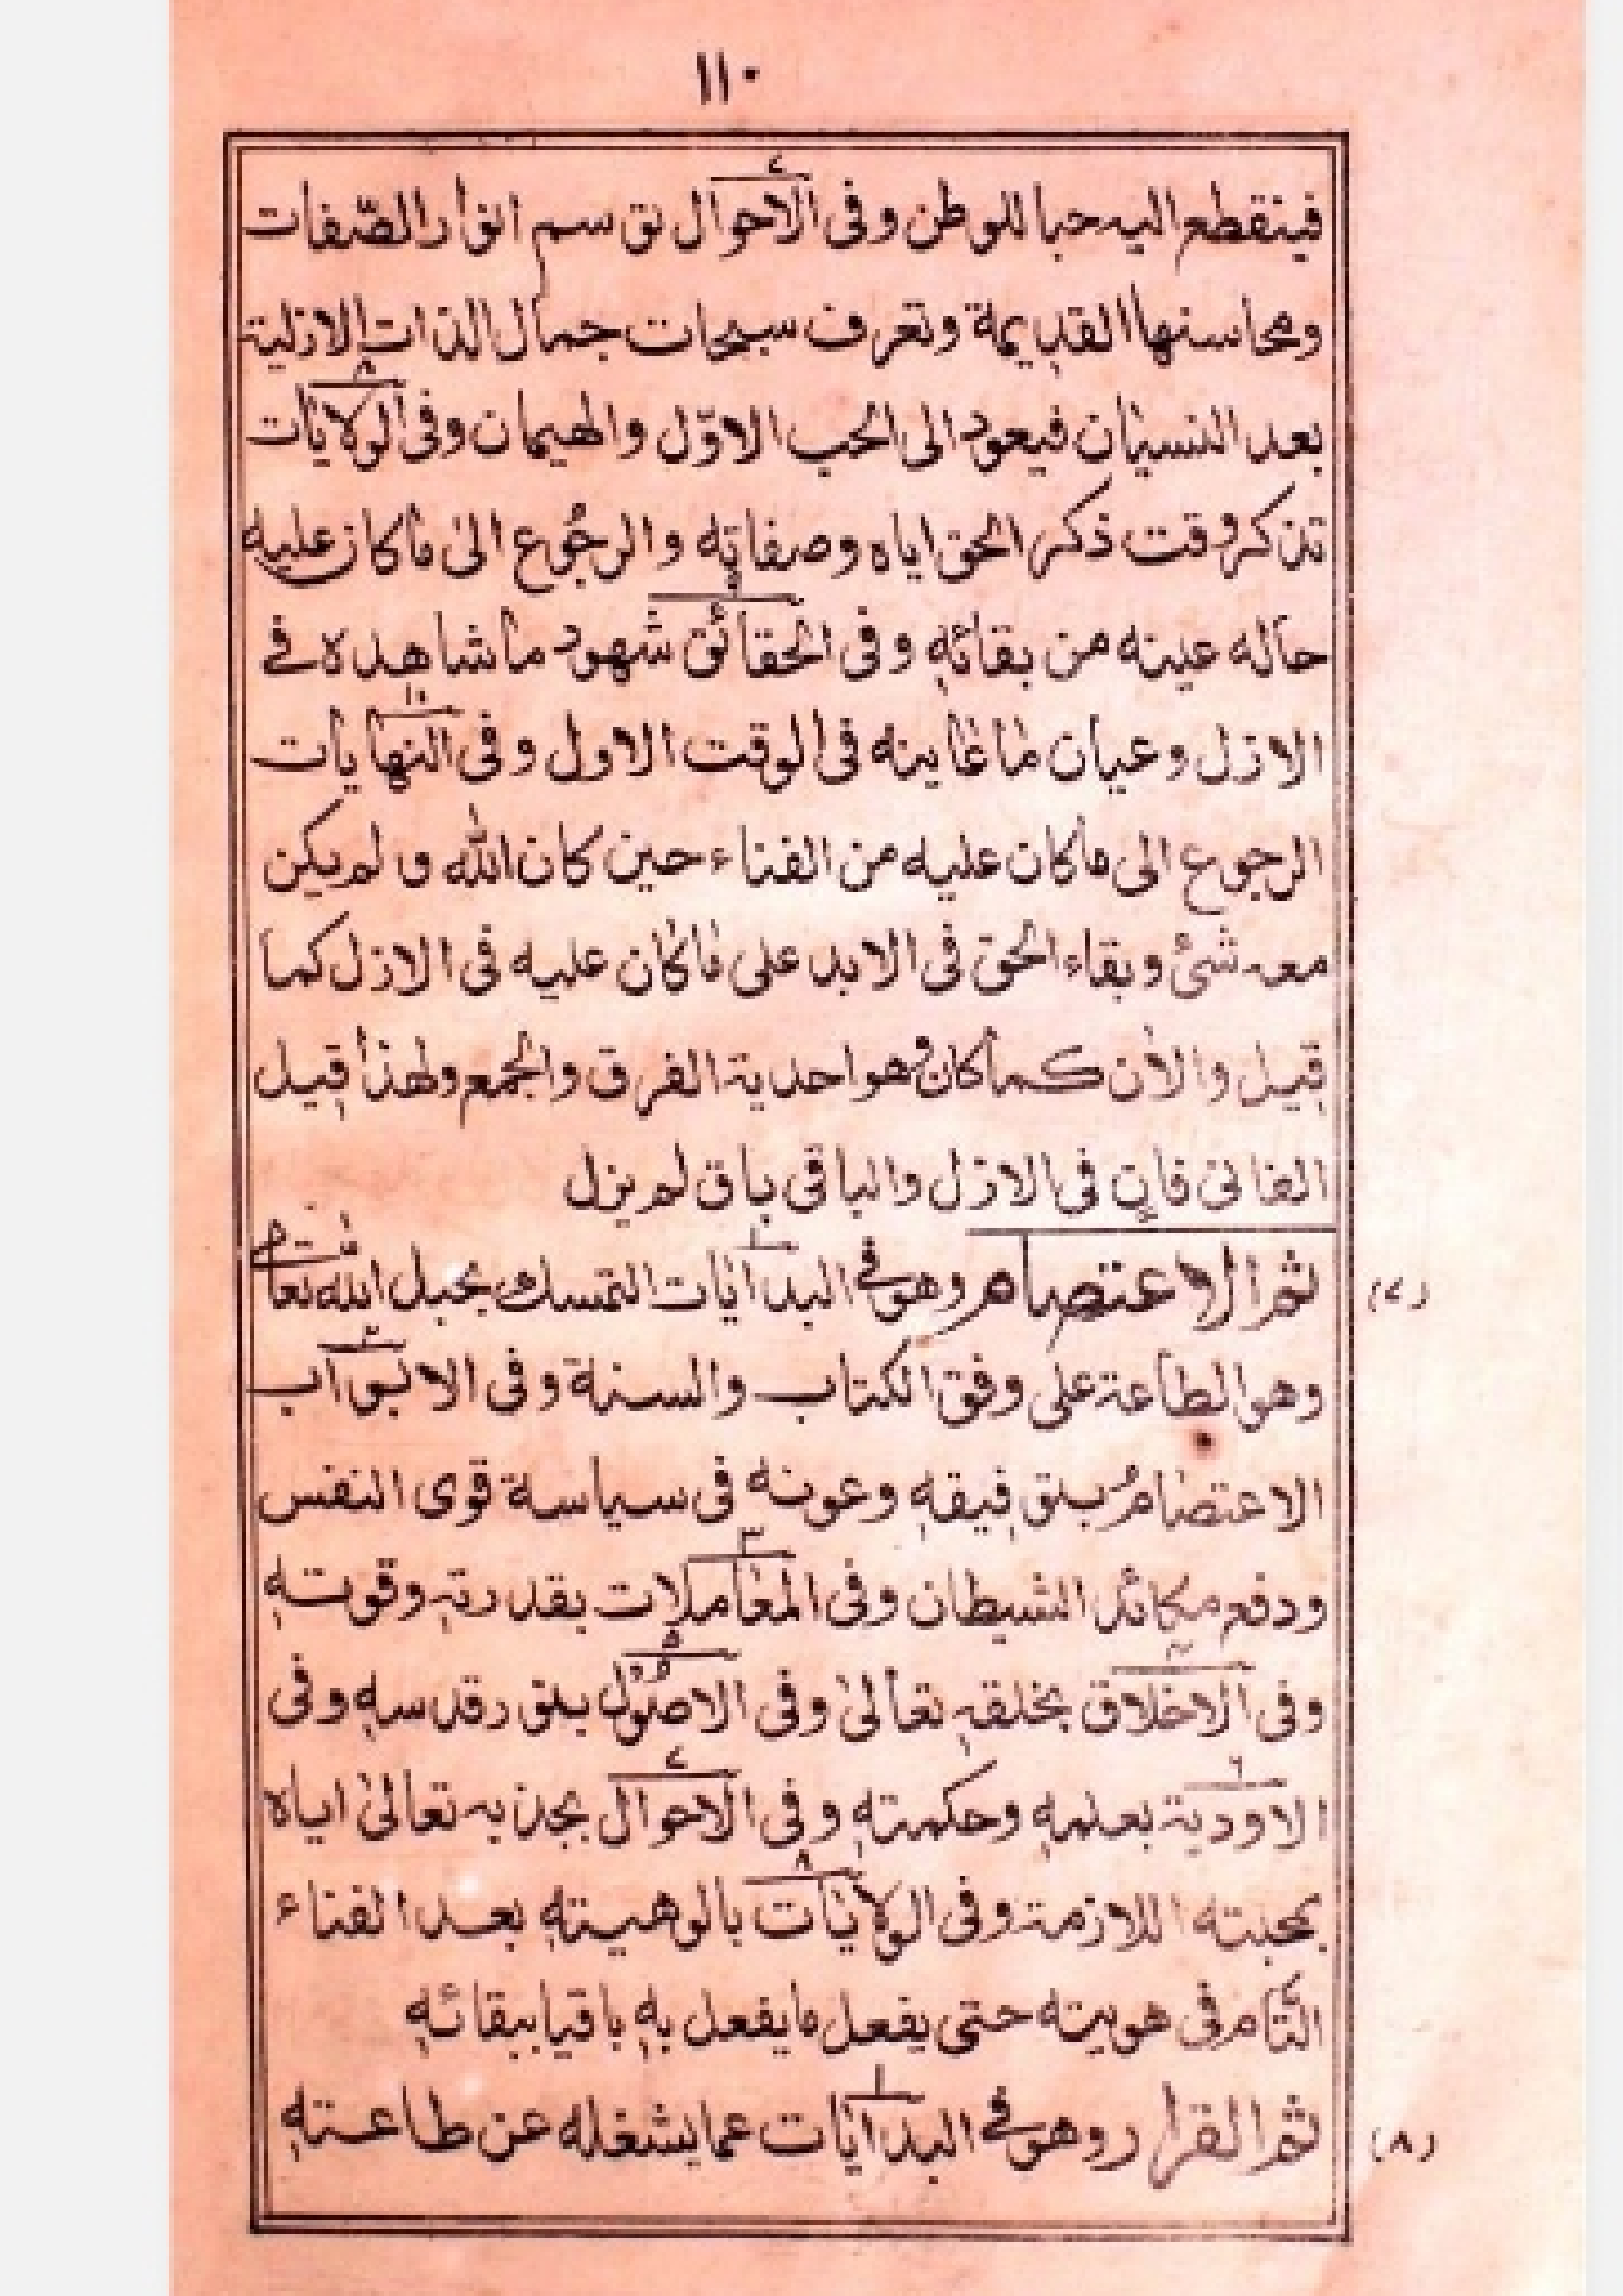 ١١٠
٧
فينقطع اليه حبا للوطن وفى الاحوال توسم انوار الصّفات
ومحاسنها القديمة وتعرف سبحات جمال الذات الازلية
٨
بعد النسيان فيعود الى الحب الاوّل والهيمان وفى الولايات
تذكر وقت ذكر الحق اياه وصفاته والرجُوع الىٰ ما كان عليه
٩
حاله عينه من بقائهٖ وفى الحقائق شهود ما شاهده فے
١٠
الازل وعيان ما عاينه فى الوقت الاول وفى النهايات
الرجوع الى ما كان عليه من الفناء حين كان الله ولم يكن
معه شئ وبقاء الحق فى الابد على ما كان عليه فى الازل كما
قيل والاٰن كما كان وهو احدية الفرق والجمع ولهذا قيل
الفانى فانٍ فى الازل والباقى باق لم يزل
١
(٧) ثم الاعتصام وهو فے البدايات التمسك بحبل الله تعالىٰ
٢
وهو الطاعة على وفق الكتاب والسنة وفى الابواب
الاعتصامُ بتوفيقهٖ وعونهٖ فى سياسة قوى النفس
٣
ودفع مكائد الشيطان وفى المعاملات بقدرتهٖ وقوتهٖ
٤ ٥
وفى الاخلاق بخلقهٖ تعالىٰ وفى الاصُول بنور قدسهٖ وفى
٦ ٧
الاودية بعلمهٖ وحكمتهٖ وفى الاحوال بجذبه تعالىٰ اياه
٨
بمحبته اللازمة وفى الولايات بالوهيتهٖ بعد الفناء
التّام فى هويته حتى يفعل ما يفعل بهٖ باقيا ببقائهٖ
١
(٨) ثم الفرار وهو فے البدايات عما يشغله عن طاعتهٖ